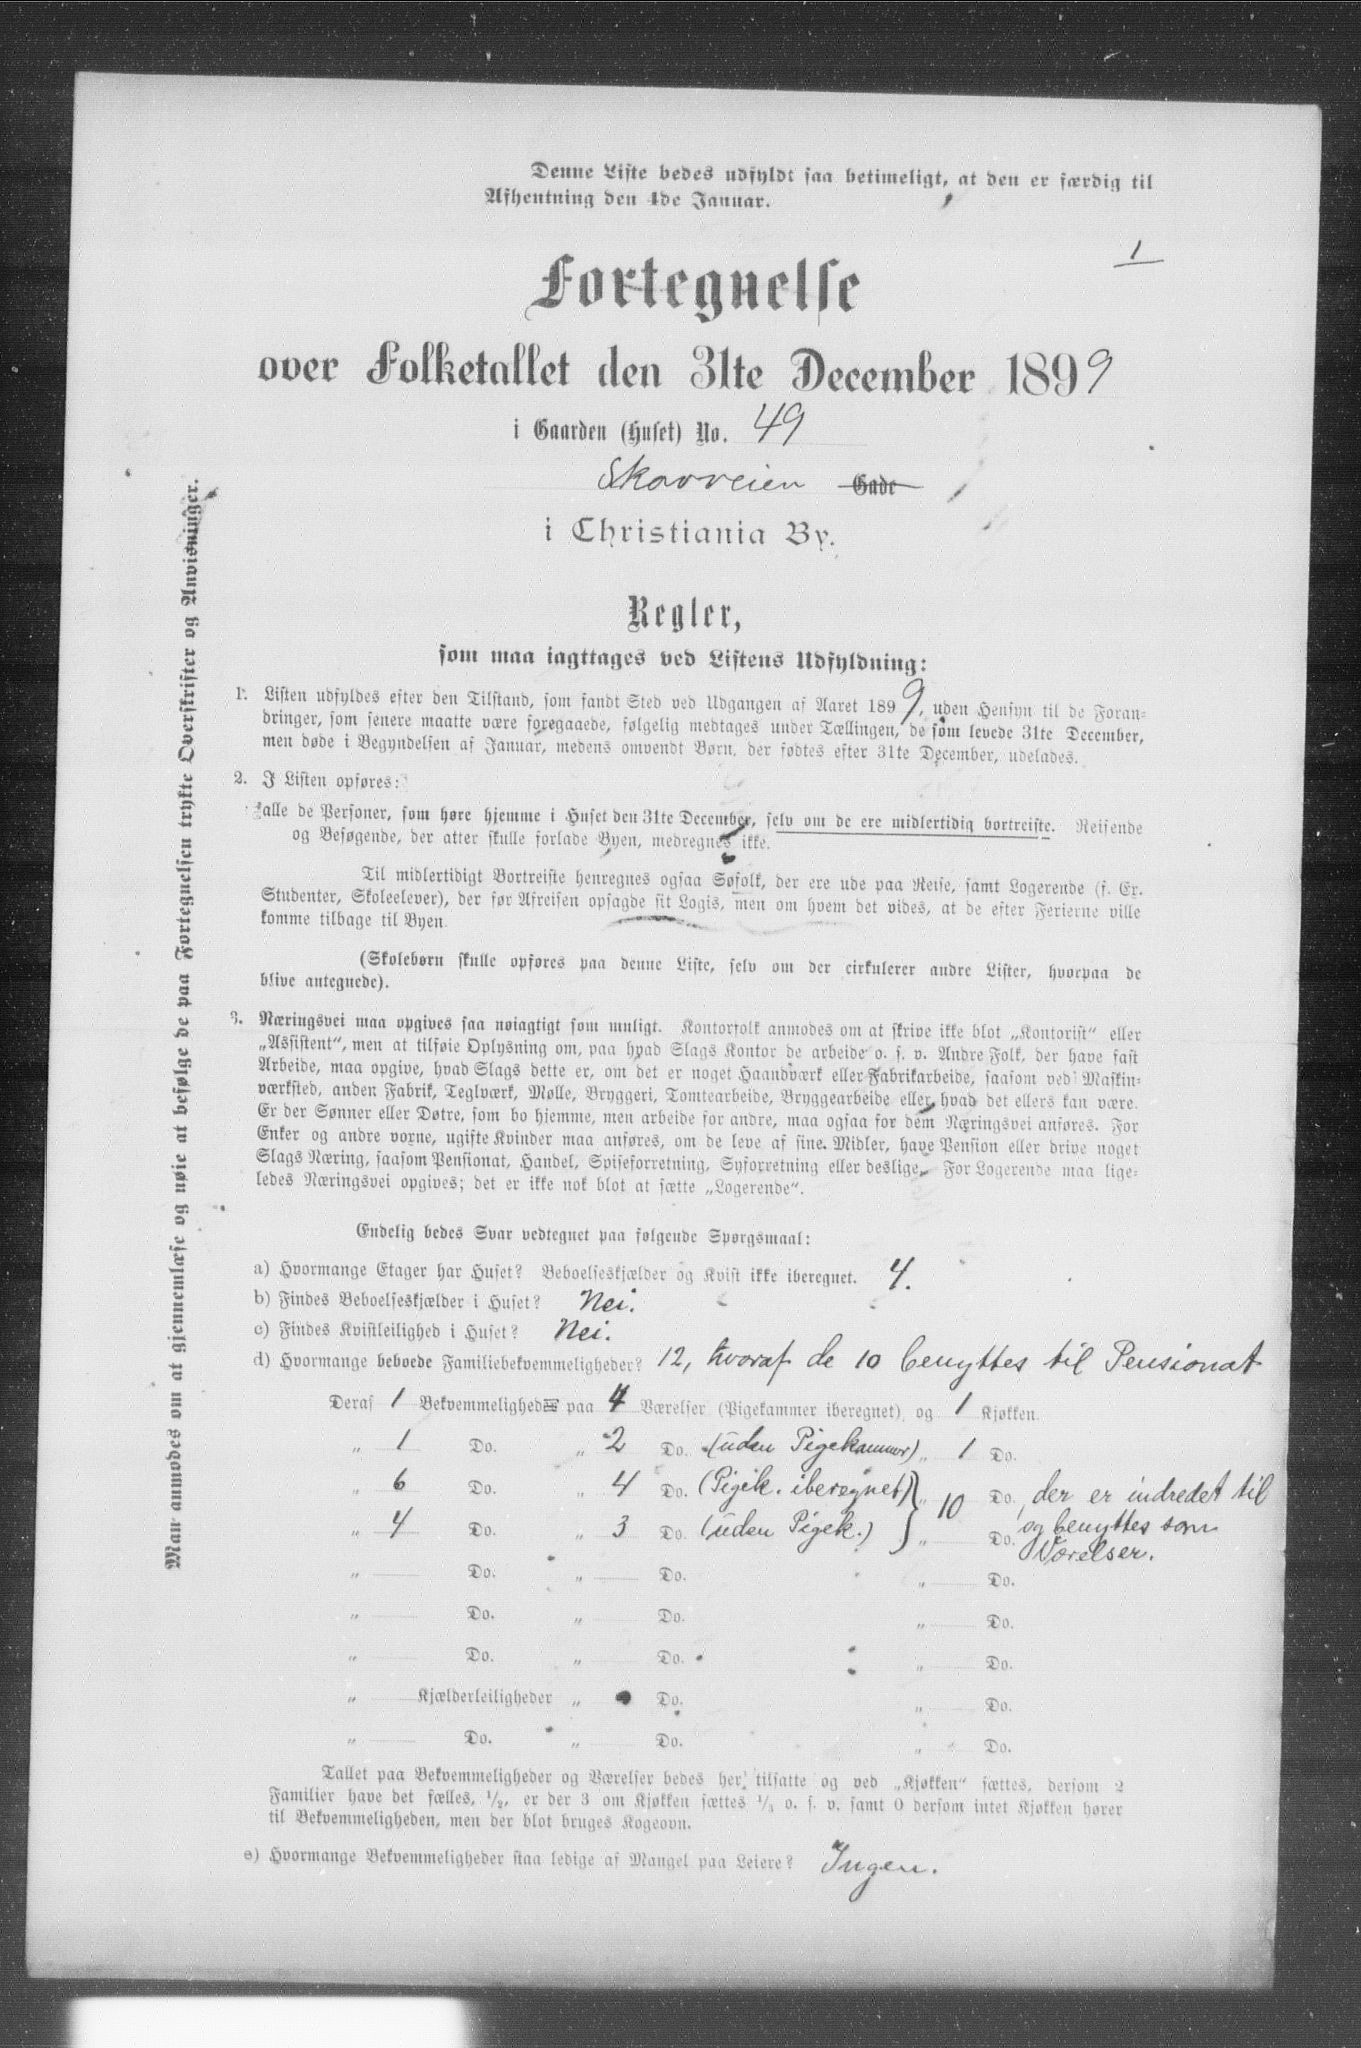 Denne Liste bedes udfyldt saa betimeligt, at den er færdig til
Afhentning den 4de Januar.
1
Fortegnelse
over Folketallet den 31te December 1899
i Gaarden (Huset) No. 49
Skovveien Gade
i Christiania By.
Regler,
som maa iagttages ved Listens Udfyldning:
1. Listen udfyldes efter den Tilstand, som fandt Sted ved Udgangen af Aaret 1899, uden Hensyn til de Foran-
dringer, som senere maatte være foregaaede, følgelig medtages under Tællingen, de som levede 31te December,
men døde i Begyndelsen af Januar, medens omvendt Børn, der fødtes efter 31te December, udelades.
2. I Listen opføres:
alle de Personer, som høre hjemme i Huset den 31te December, selv om de ere midlertidig bortreiste. Reisende
og Besøgende, der atter skulle forlade Byen, medregnes ikke.
Til midlertidigt Bortreiste henregnes ogsaa Søfolk, der ere ude paa Reise, samt Logerende (f. Ex.
Studenter, Skoleelever), der før Afreisen opsagde sit Logis, men om hvem det vides, at de efter Ferierne ville
komme tilbage til Byen.
(Skolebørn skulle opføres paa denne Liste, selv om der cirkulerer andre Lister, hvorpaa de
blive antegnede).
3. Næringsvei maa opgives saa nøiagtigt som muligt. Kontorfolk anmodes om at skrive ikke blot „Kontorist“ eller
„Assistent“, men at tilføie Oplysning om, paa hvad Slags Kontor de arbeide o. s. v. Andre Folk, der have fast
Arbeide, maa opgive, hvad Slags dette er, om det er noget Haandværk eller Fabrikarbeide, saasom ved Maskin-
værksted, anden Fabrik, Teglværk, Mølle, Bryggeri, Tomtearbeide, Bryggearbeide eller hvad det ellers kan være.
Er der Sønner eller Døtre, som bo hjemme, men arbeide for andre, maa ogsaa for dem Næringsvei anføres. For
Enker og andre voxne, ugifte Kvinder maa anføres, om de leve af sine Midler, have Pension eller drive noget
Slags Næring, saasom Pensionat, Handel, Spiseforretning, Syforretning eller deslige. For Logerende maa lige-
ledes Næringsvei opgives; det er ikke nok blot at sætte „Logerende“.
Endelig bedes Svar vedtegnet paa følgende Spørgsmaal:
a) Hvormange Etager har Huset? Beboelseskjælder og Kvist ikke iberegnet. 4.
b) Findes Beboelseskjælder i Huset? Nei.
c) Findes Kvistleilighed i Huset? Nei.
d) Hvormange beboede Familiebekvemmeligheder? 12, hvoraf de 10 benyttes til Pensionat
Deraf 1 Bekvemmeligheder paa 4 Værelser (Pigekammer iberegnet) og 1 Kjøkken.
„ 1 Do. „ 2 Do. (uden Pigekammer) „ 1 Do.
„ 6 Do. „ 4 Do. (Pigek. iberegnet) „ 10 Do. der er indredet til
„ 4 Do. „ 3 Do. (uden Pigek.) „ Do. og benyttes som
Værelser.
„ Do. „ Do. „ Do.
„ Do. „ Do. „ Do.
„ Do. „ Do. „ Do.
„ Kjælderleiligheder „ Do. „ Do.
„ Do. „ Do. „ Do.
Tallet paa Bekvemmeligheder og Værelser bedes her tilsatte og ved „Kjøkken“ sættes, dersom 2
Familier have det fælles, 1/2, er der 3 om Kjøkken sættes 1/3 o. s. v. samt 0 dersom intet Kjøkken hører
til Bekvemmeligheden, men der blot bruges Kogeovn.
e) Hvormange Bekvemmeligheder staa ledige af Mangel paa Leiere? Ingen.
Man anmodes om at gjennemlæse og nøie at befølge de paa Fortegnelsen trykte Overskrifter og Anvisninger.